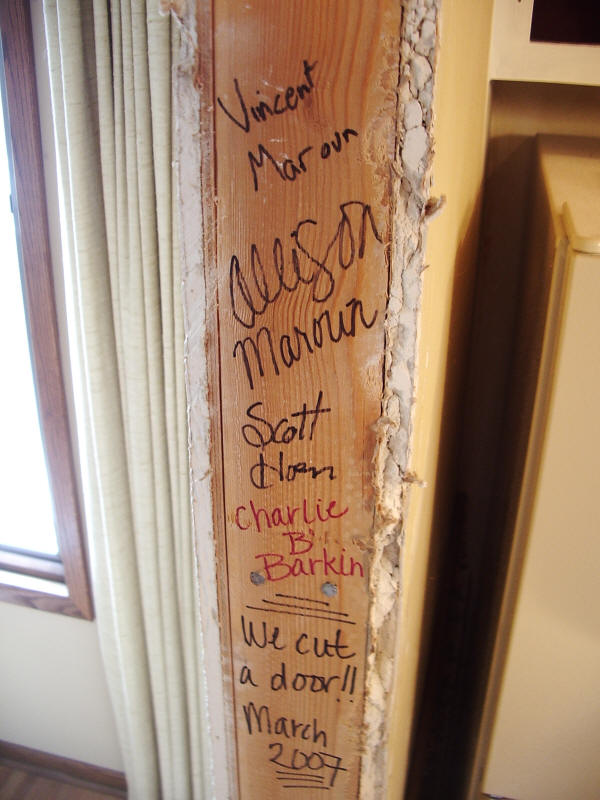 Vincent
Maroun
Allison
Maroun
Scott
Charlie
B
Barkin
We cut
a door!!
March
2007